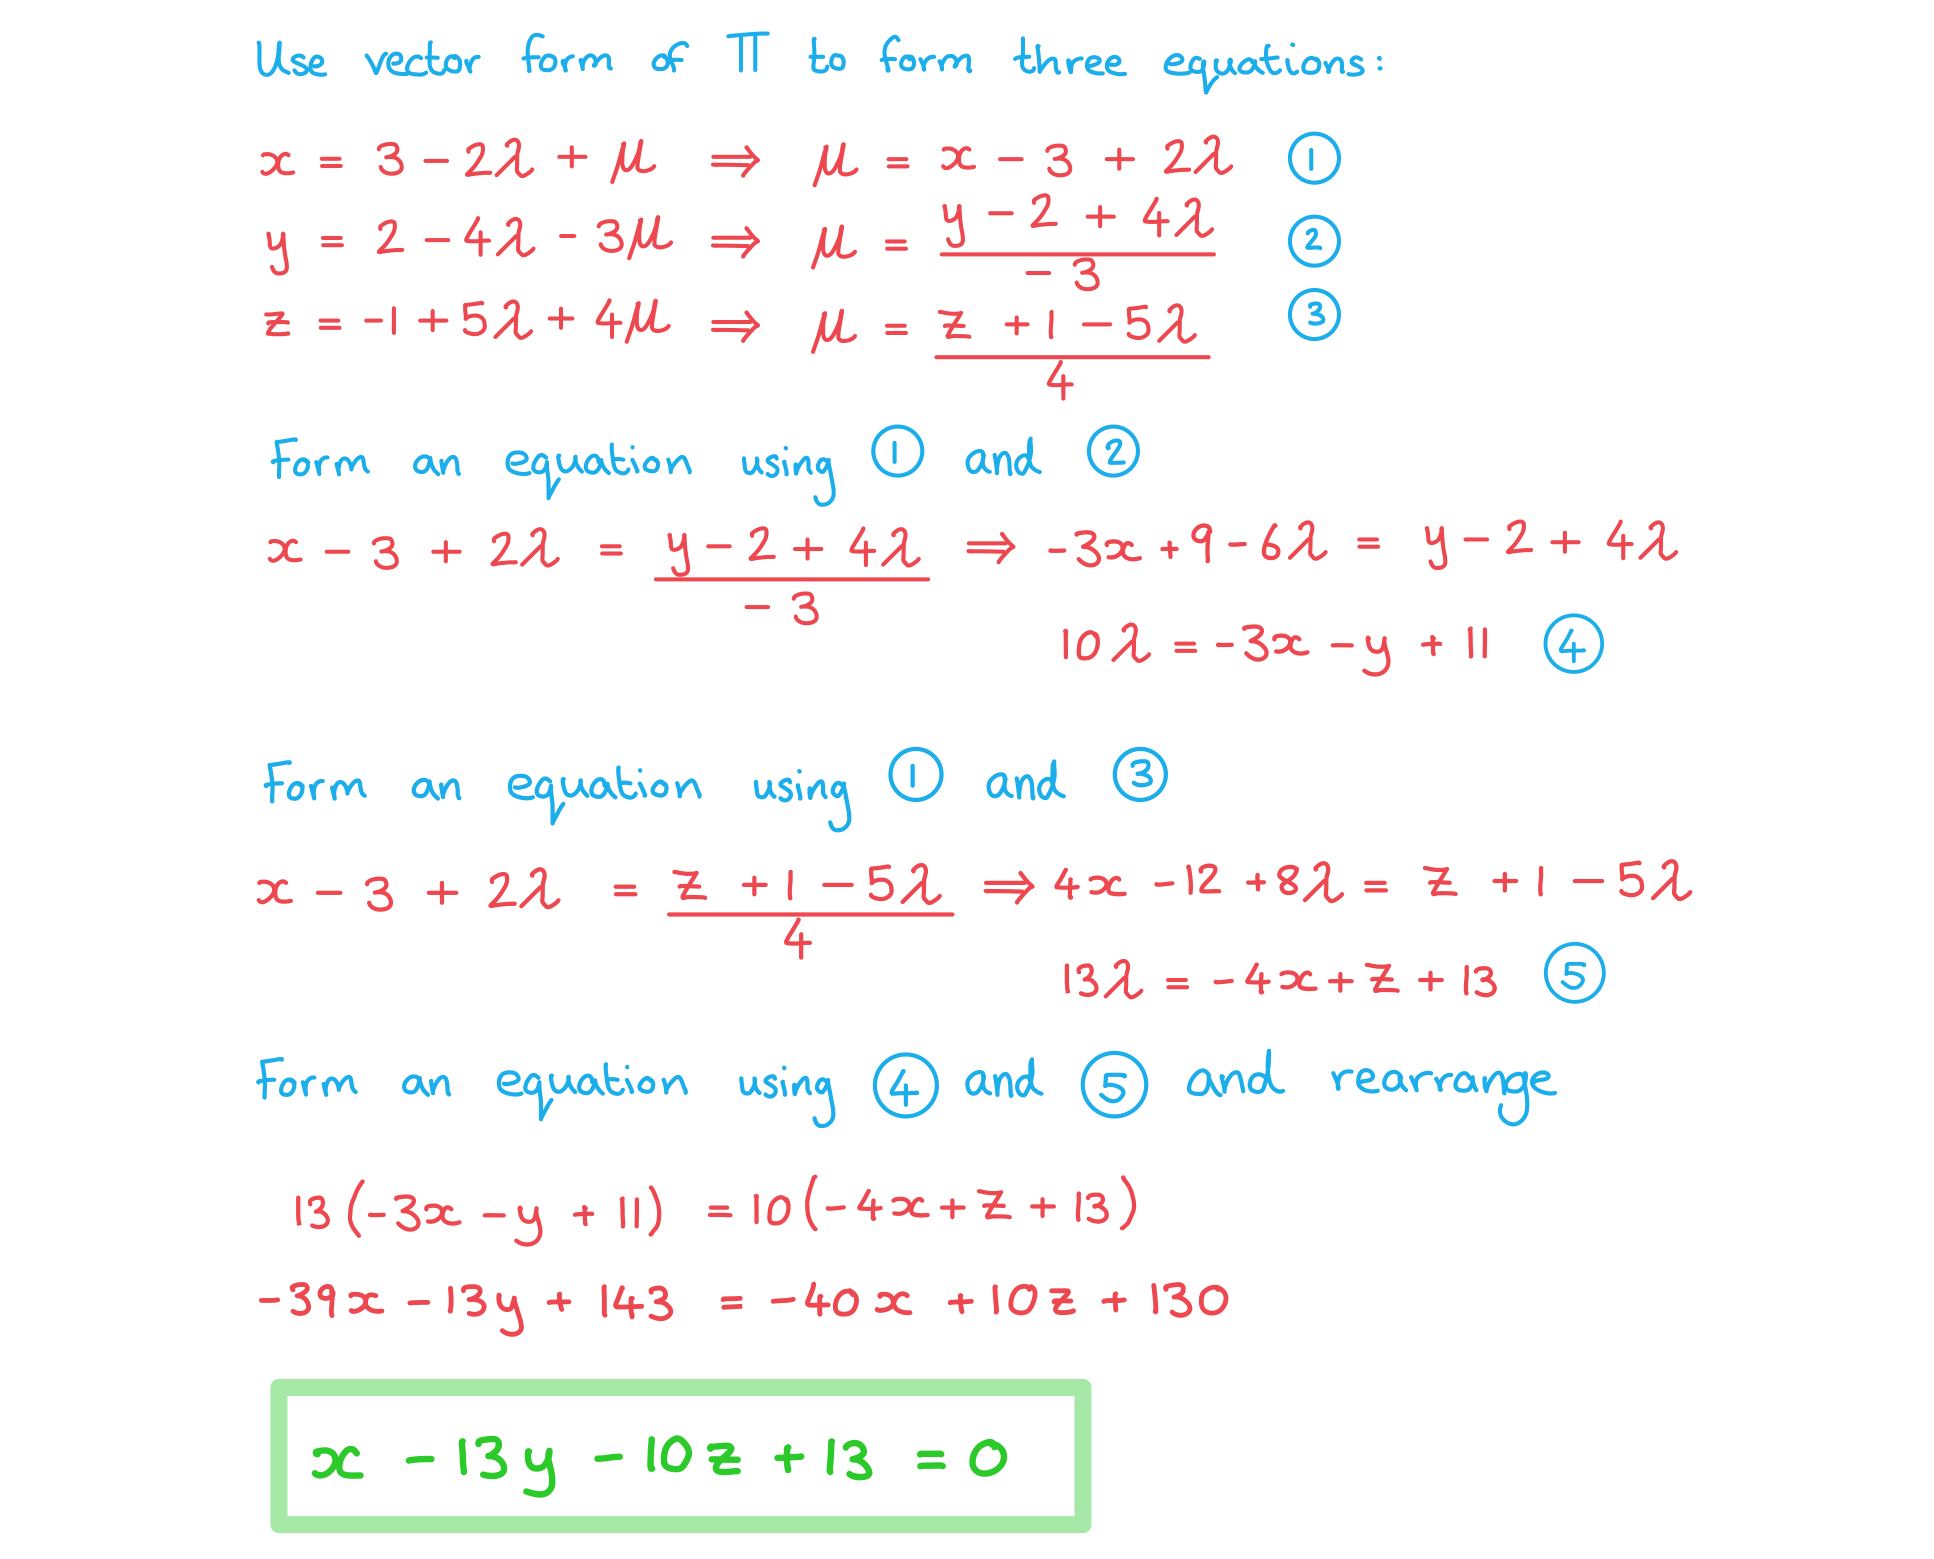 Use vector form of Π to form three equations:
x = 3 - 2λ + μ ⇒ μ = x - 3 + 2λ ①
y = 2 - 4λ - 3μ ⇒ μ = (y - 2 + 4λ)/(-3) ②
z = -1 + 5λ + 4μ ⇒ μ = (z + 1 - 5λ)/4 ③
Form an equation using ① and ②
x - 3 + 2λ = (y - 2 + 4λ)/(-3) ⇒ -3x + 9 - 6λ = y - 2 + 4λ
10λ = -3x - y + 11 ④
Form an equation using ① and ③
x - 3 + 2λ = (z + 1 - 5λ)/4 ⇒ 4x - 12 + 8λ = z + 1 - 5λ
13λ = -4x + z + 13 ⑤
Form an equation using ④ and ⑤ and rearrange
13(-3x - y + 11) = 10(-4x + z + 13)
-39x - 13y + 143 = -40x + 10z + 130
x - 13y - 10z + 13 = 0